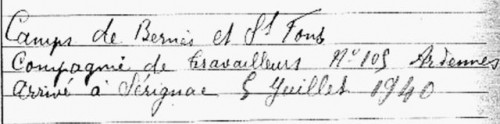 Camps de Bernès et St Fons
Compagnie de travailleurs No 105 Ardennes
arrivé à Sérignac 5 Juillet 1940